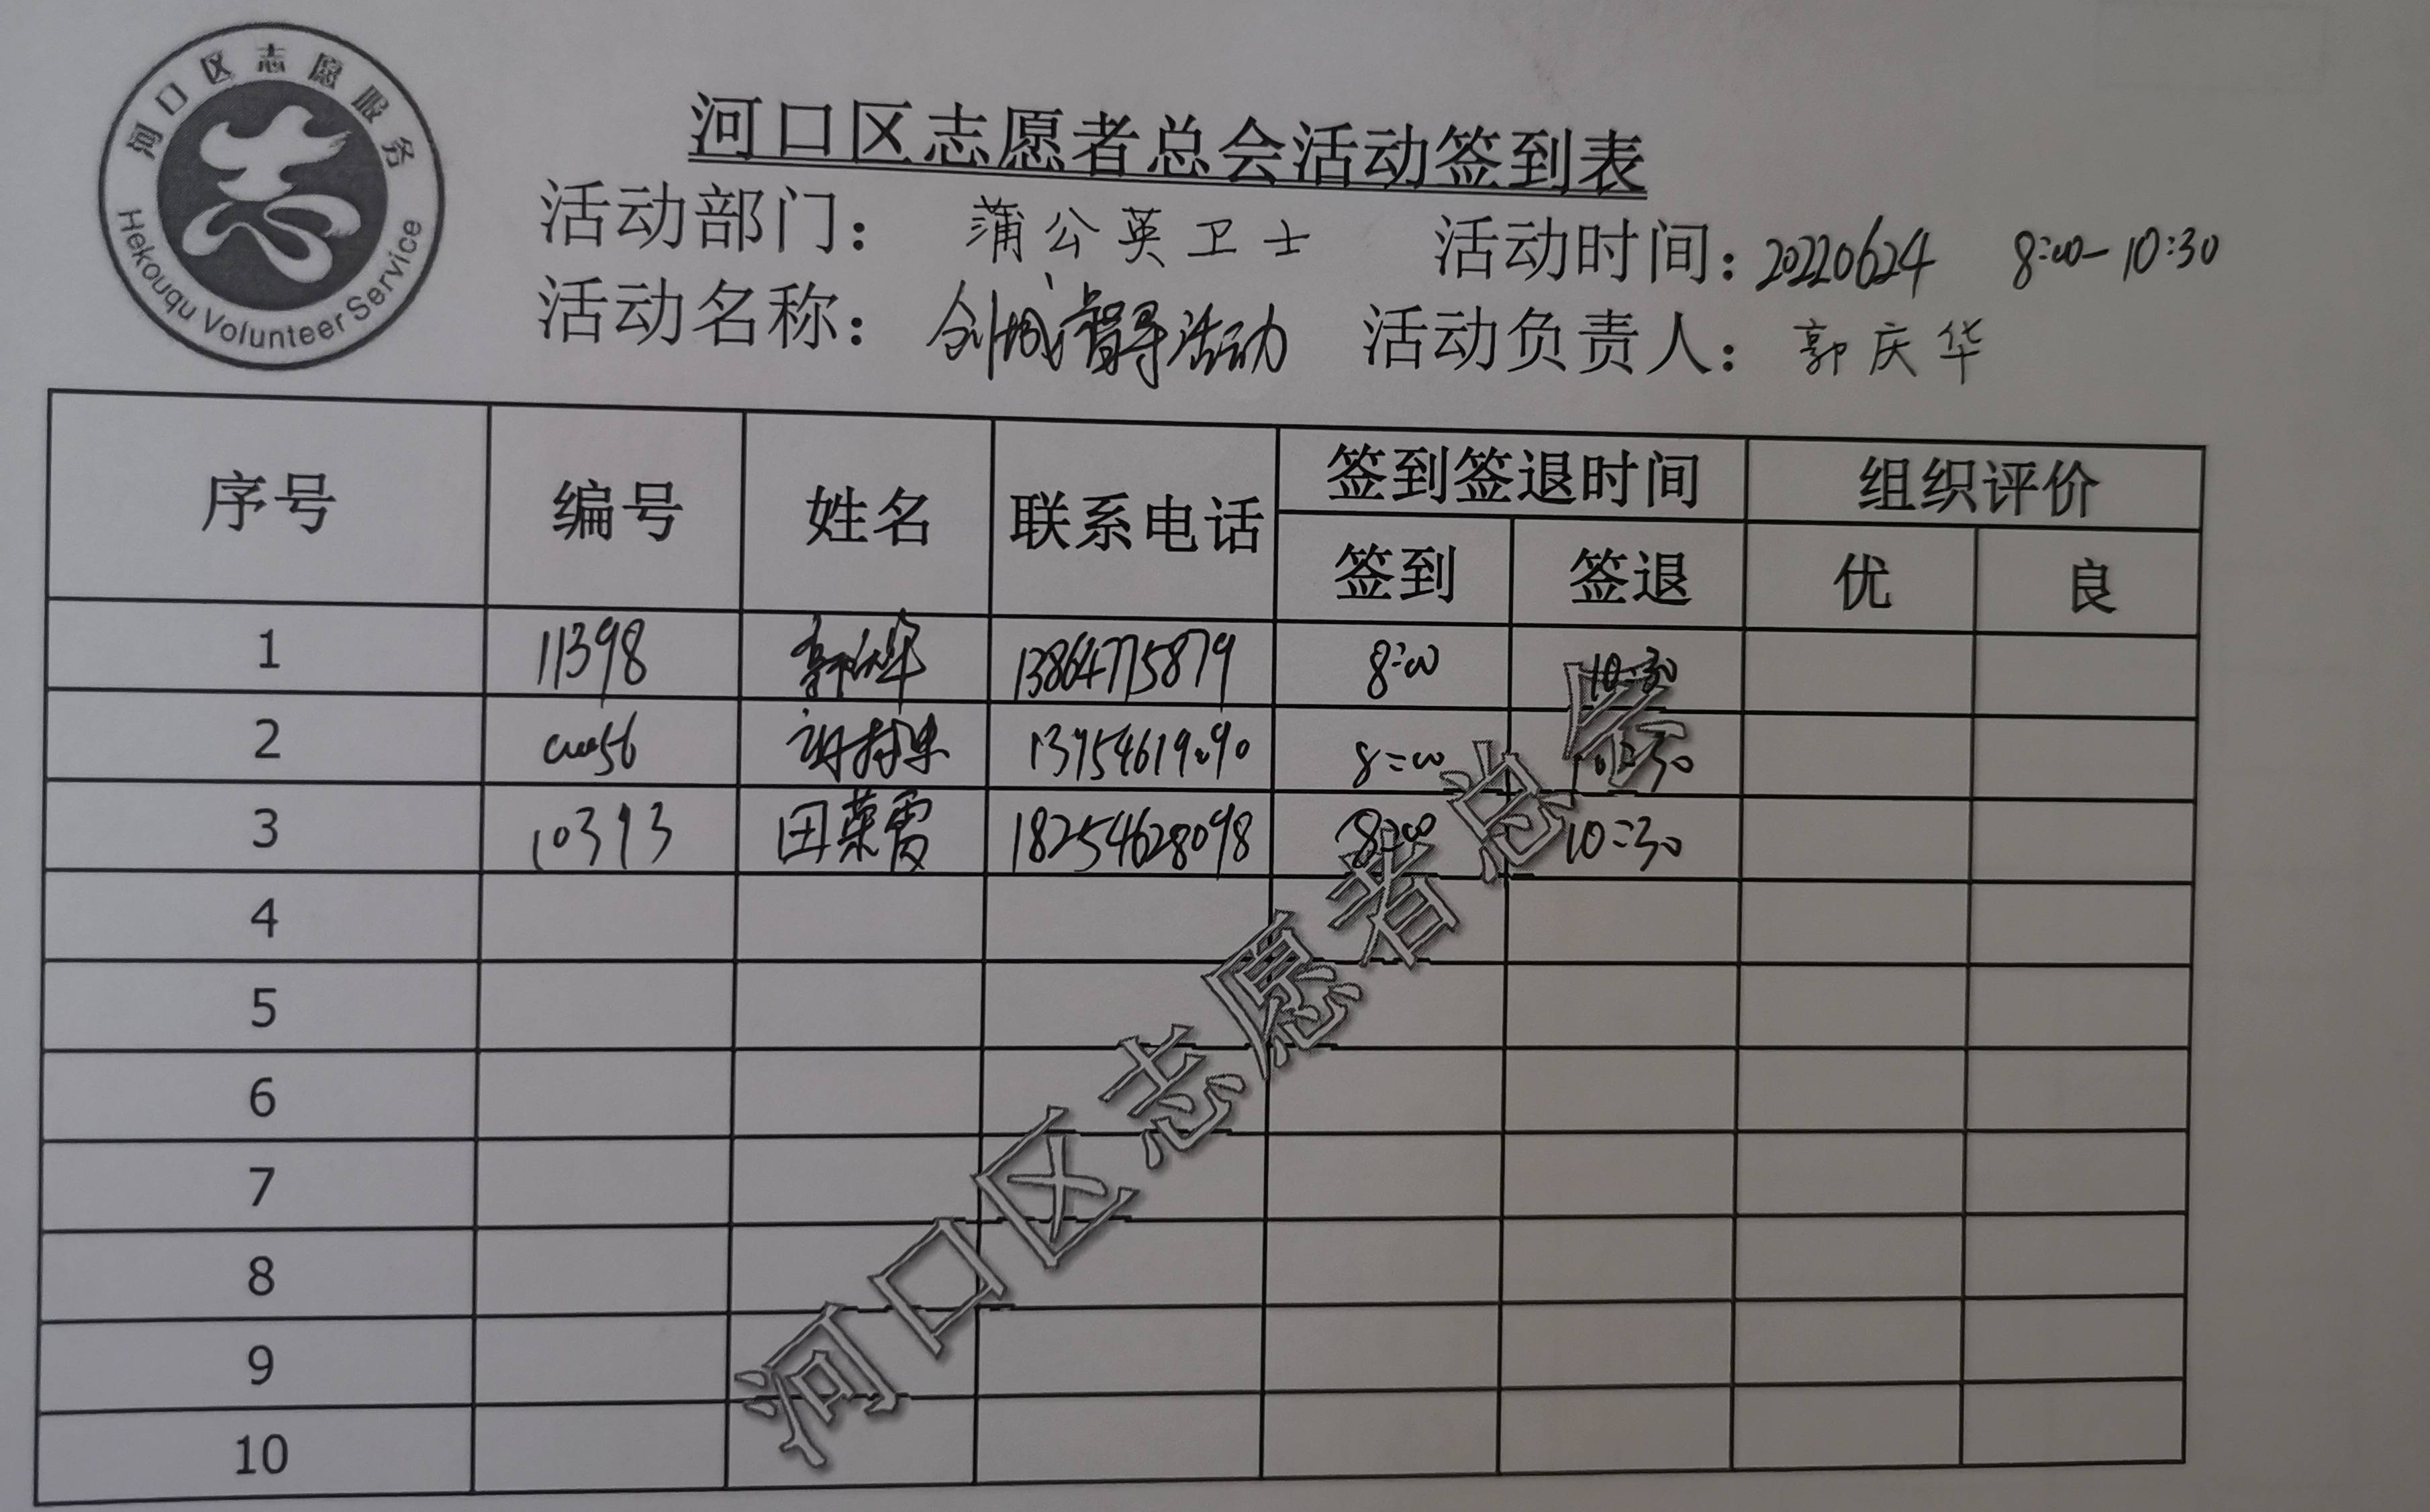 河口区志愿服务
Hekouqu Volunteer Service
河口区志愿者总会活动签到表
活动部门： 蒲公英卫士 活动时间：20220624 8:00-10:30
活动名称： 创城督导活动 活动负责人：郭庆华
序号 编号 姓名 联系电话 签到签退时间 组织评价
签到 签退 优 良
1 11398 郭庆华 13864775879 8:00 10:30
2 13954619090 8:00 10:30
3 10393 田荣霞 18254628098 8:00 10:30
4
5
6
7
8
9
10
河口区志愿者总会